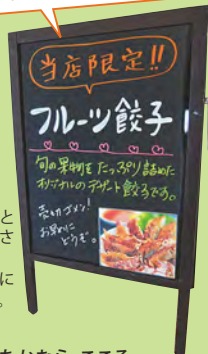 当店限定!!
フルーツ餃子
旬の果物をたっぷり詰めた
オリジナルのデザート餃子です。
売切ゴメン!
お早めに
どうぞ。
と
さ
に
。